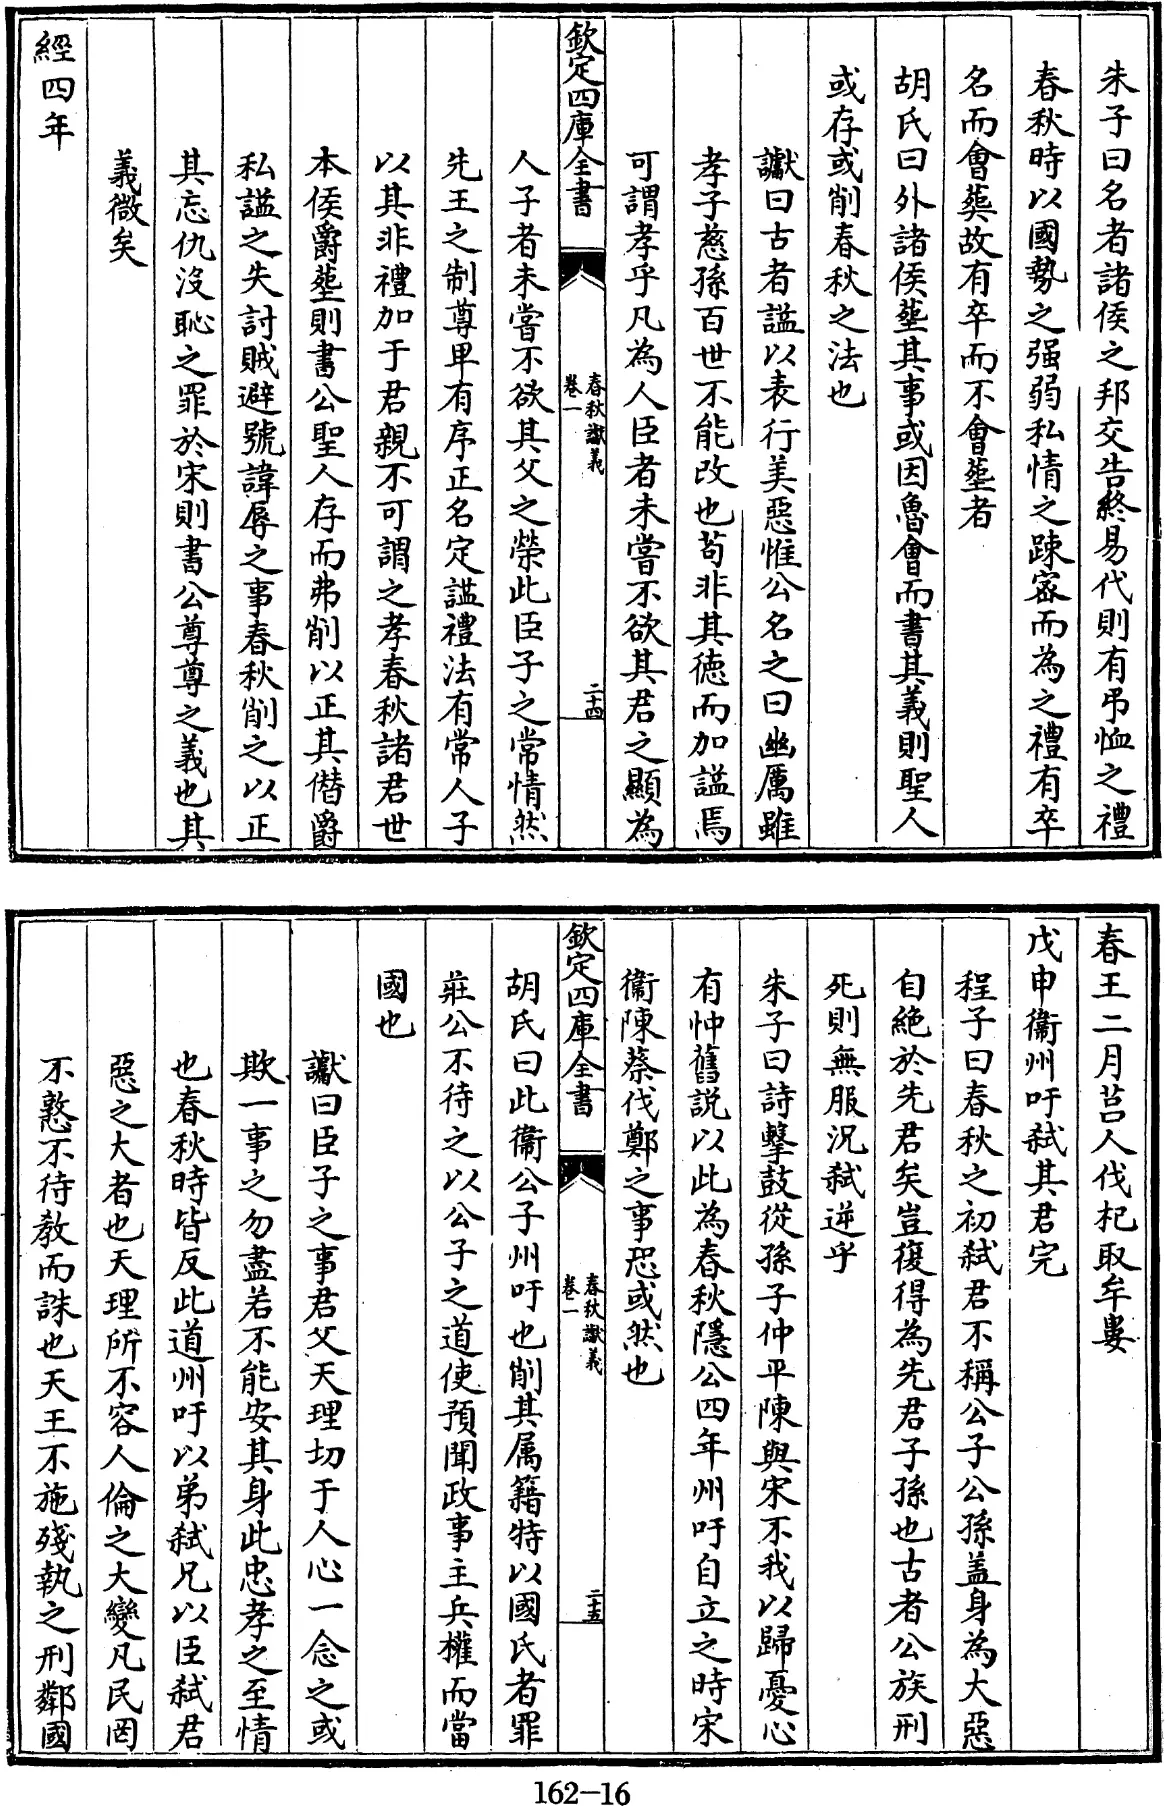 朱子曰名者諸侯之邦交告終易代則有弔恤之禮
春秋時以國勢之强弱私情之踈宻而為之禮有卒
名而會葬故有卒而不會塟者
胡氏曰外諸侯塟其事或因魯會而書其義則聖人
或存或削春秋之法也
讞曰古者諡以表行美惡惟公名之曰幽厲雖
孝子慈孫百世不能改也苟非其徳而加諡焉
可謂孝乎凡為人臣者未嘗不欲其君之顯為
欽定四庫全書
春秋讞義
卷一
二十四
人子者未嘗不欲其父之榮此臣子之常情然
先王之制尊卑有序正名定諡禮法有常人子
以其非禮加于君親不可謂之孝春秋諸君世
本侯爵塟則書公聖人存而弗削以正其僭爵
私諡之失討賊避號諱辱之事春秋削之以正
其忘仇沒恥之罪於宋則書公尊尊之義也其
義微矣
經四年
春王二月莒人伐杞取牟婁
戊申衞州吁弑其君完
程子曰春秋之初弑君不稱公子公孫盖身為大惡
自絶於先君矣豈復得為先君子孫也古者公族刑
死則無服況弑逆乎
朱子曰詩擊鼓從孫子仲平陳與宋不我以歸憂心
有忡舊説以此為春秋隱公四年州吁自立之時宋
衞陳蔡伐鄭之事恐或然也
欽定四庫全書
春秋讞義
卷一
二十五
胡氏曰此衞公子州吁也削其属籍特以國氏者罪
莊公不待之以公子之道使預聞政事主兵權而當
國也
讞曰臣子之事君父天理切于人心一念之或
欺一事之勿盡若不能安其身此忠孝之至情
也春秋時皆反此道州吁以弟弑兄以臣弑君
惡之大者也天理所不容人倫之大變凡民罔
不憝不待教而誅也天王不施殘執之刑鄰國
162-16